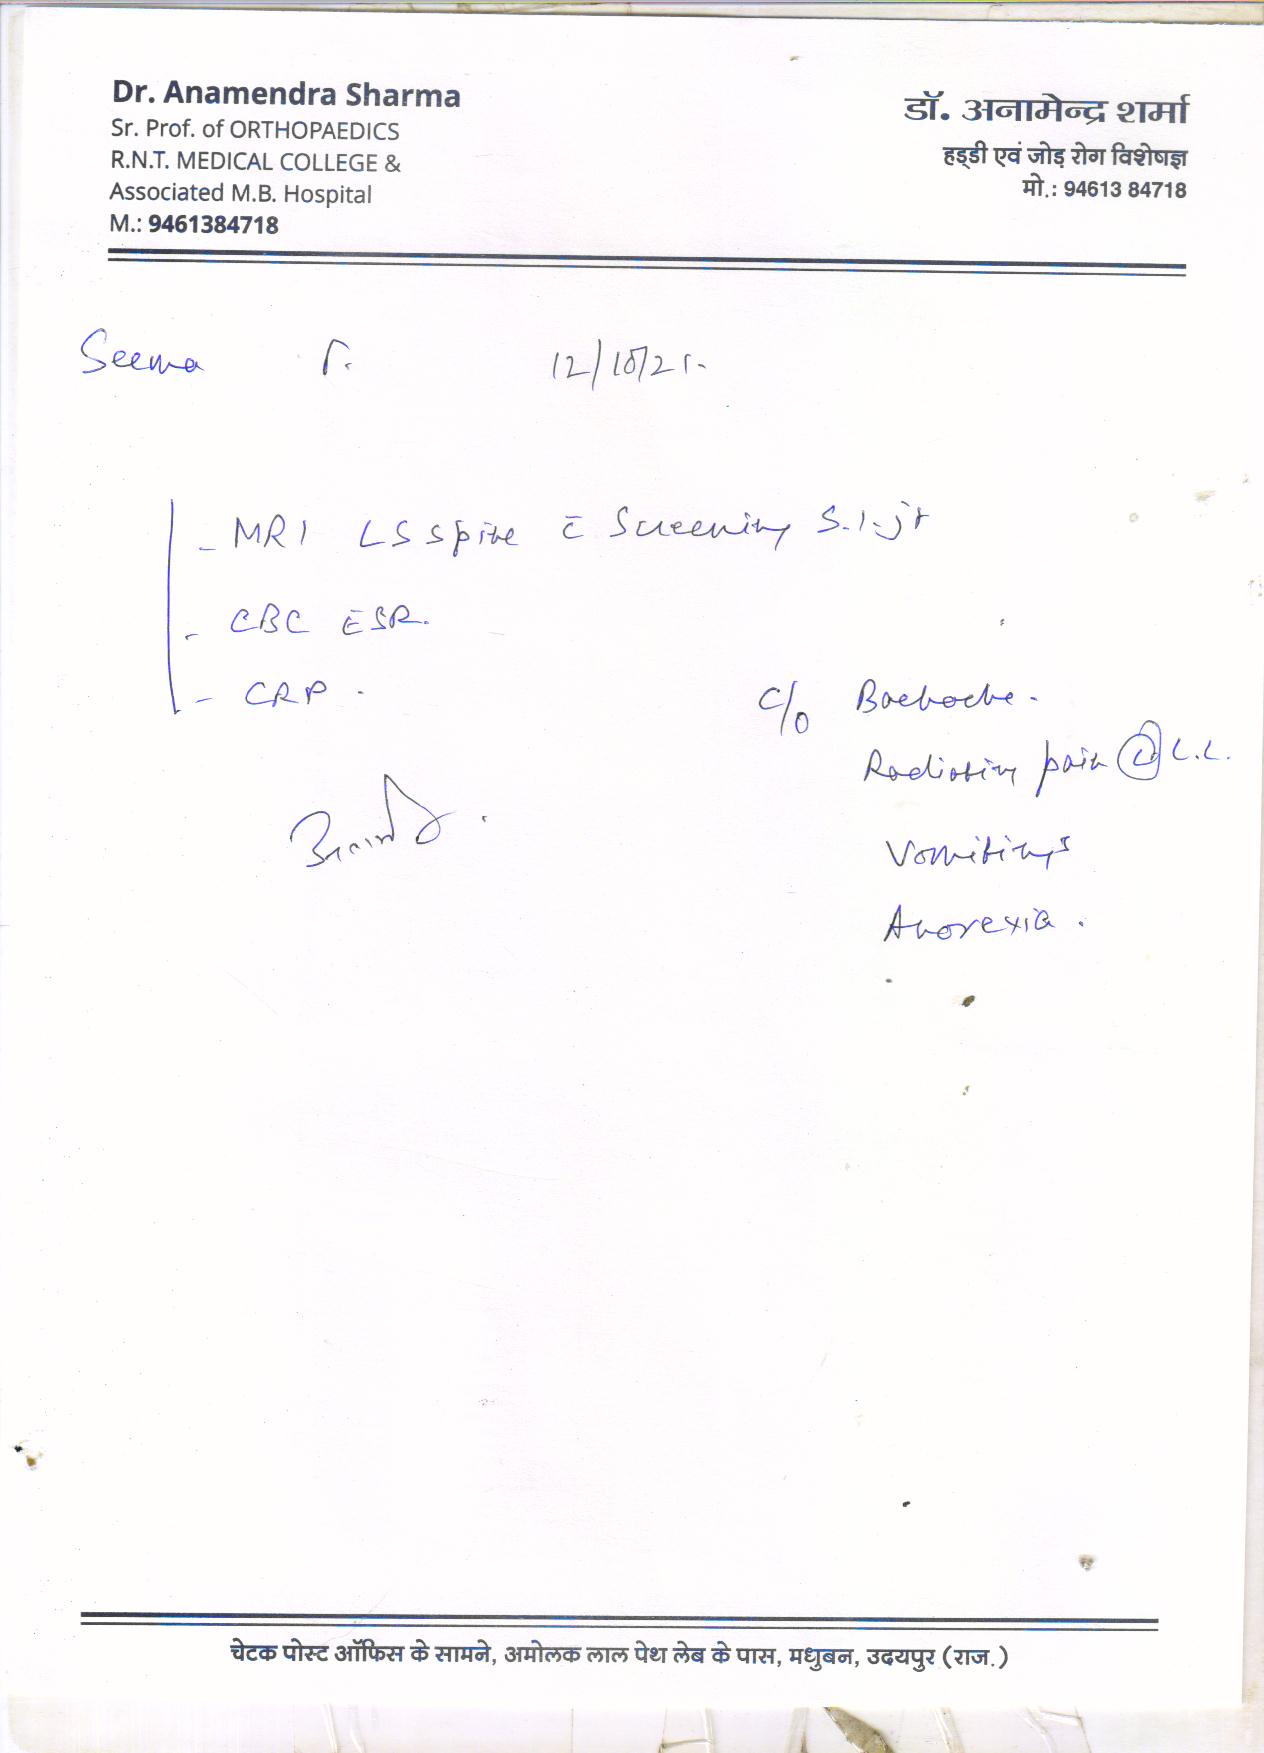 Dr. Anamendra Sharma
Sr. Prof. of ORTHOPAEDICS
R.N.T. MEDICAL COLLEGE &
Associated M.B. Hospital
M.: 9461384718
डॉ. अनामेन्द्र शर्मा
हड्डी एवं जोड़ रोग विशेषज्ञ
मो.: 94613 84718
Seema 12/10/21.
- MRI LS spine c̄ Screening S.I.jt
- CBC ESR.
- CRP.
c/o Backache.
Radiating pain Ⓛ L.L.
Vomitings
Anorexia.
चेटक पोस्ट ऑफिस के सामने, अमोलक लाल पेथ लेब के पास, मधुबन, उदयपुर (राज.)